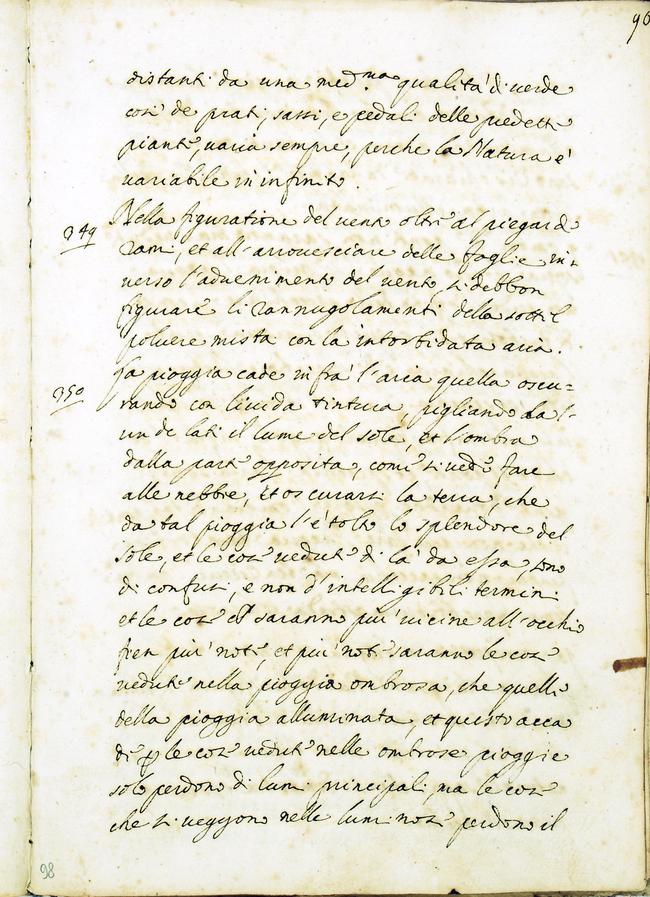 96
distanti da una med.ma qualità di uerde
così de prati, sassi, e pedali delle uedette
piante, uaria sempre, perche la Natura è
uariabile in infinito.
349 Nella figuratione del uento oltre al piegar de
rami, et all'arrouesciare delle foglie in-
uerso l'aduenimento del uento, si debbon
figurare li rannugolamenti della sottil
poluere mista con la intorbidata aria.
350 La pioggia cade infrà l'aria quella oscu=
rando con liuida tintura, pigliando da l'-
un de lati il lume del sole, et l'ombra
dalla parte opposita, come si uede fare
alle nebbie, et oscurarsi la terra, che
da tal pioggia l'è tolto lo splendore del
sole, et le cose uedute di là da essa, sono
di confusi, e non d'intelligibili termini
et le cose ch saranno più uicine all'occhio
fien più note, et più note saranno le cose
uedute nella pioggia ombrosa, che quelle
della pioggia alluminata, et questo acca
de p le cose uedute nelle ombrose pioggie
solo perdono di lumi principali, ma le cose
che si ueggono nelle luminose perdono il
98